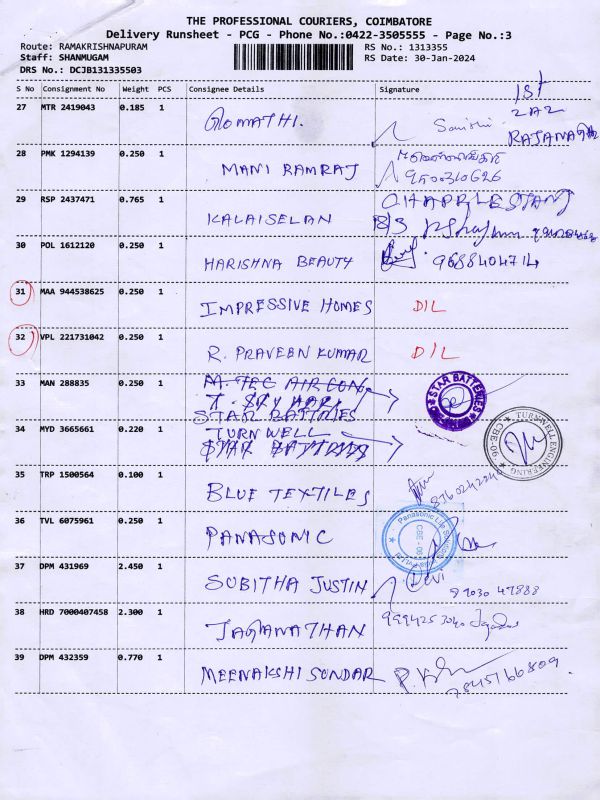 THE PROFESSIONAL COURIERS, COIMBATORE
Delivery Runsheet - PCG - Phone No.:0422-3505555 - Page No.:3
Route: RAMAKRISHNAPURAM RS No.: 1313355
Staff: SHANMUGAM RS Date: 30-Jan-2024
DRS No.: DCJB131335503
S No Consignment No Weight PCS Consignee Details Signature
1st
2A2
27 MTR 2419043 0.185 1 GOMATHI. RAJANATH
28 PMK 1294139 0.250 1 MANI RAMRAJ
29 RSP 2437471 0.765 1 KALAISELAN
30 POL 1612120 0.250 1 HARISHNA BEAUTY 9688404714
31 MAA 944538625 0.250 1 IMPRESSIVE HOMES DIL
32 VPL 221731042 0.250 1 R. PRAVEEN KUMAR DIL
33 MAN 288835 0.250 1 M. TEC AIR CON
T. SRY HARI
STAR BATTRIES STAR BATTERIES
34 MYD 3665661 0.220 1 TURN WELL TURNWELL ENGINEERING CBE-06
STAR BATTRIES
35 TRP 1500564 0.100 1 BLUE TEXTILES 8760242040
36 TVL 6075961 0.250 1 PANASONIC Panasonic Life CBE - 06
37 DPM 431969 2.450 1 SUBITHA JUSTIN Devi
38 HRD 7000407458 2.300 1 JAGANATHAN
39 DPM 432359 0.770 1 MEENAKSHI SUNDAR 7845166809